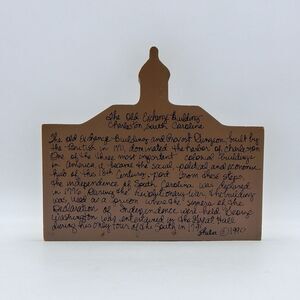 The Old Exchange Building
Charleston, South Carolina
The Old Exchange Building and Provost Dungeon, built by
the British in 1771, dominated the harbor of Charleston
One of the three most important colonial buildings
in America, it became the social, political and economic
hub of this 18th Century port. From these steps
the independence of South Carolina was declared
in 1776. During the Revolutionary war the building
was used as a prison where the signers of the
Declaration of Independence were held. George
Washington was entertained in the Great Hall
during his only tour of the South in 1791.
©1990